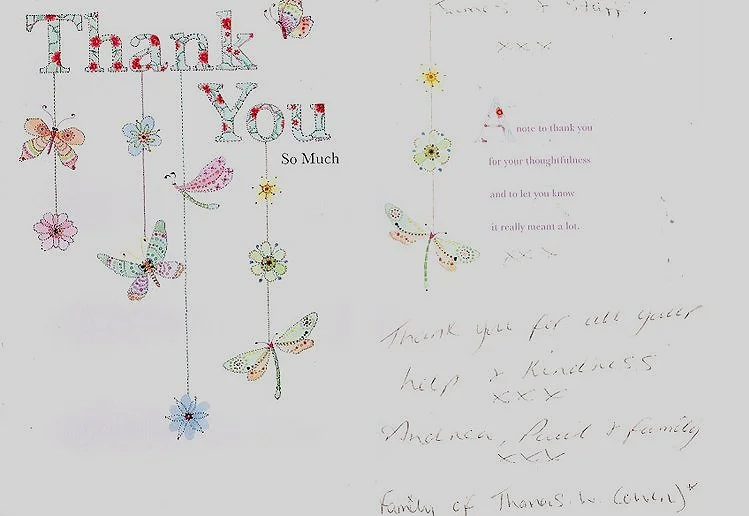 Thank
You
So Much
& Staff.
xxx
A note to thank you
for your thoughtfulness
and to let you know
it really meant a lot.
xxx
Thank you for all your
help & Kindness
xxx
Andrea, Paul & family
xxx
Family of Thomas W.